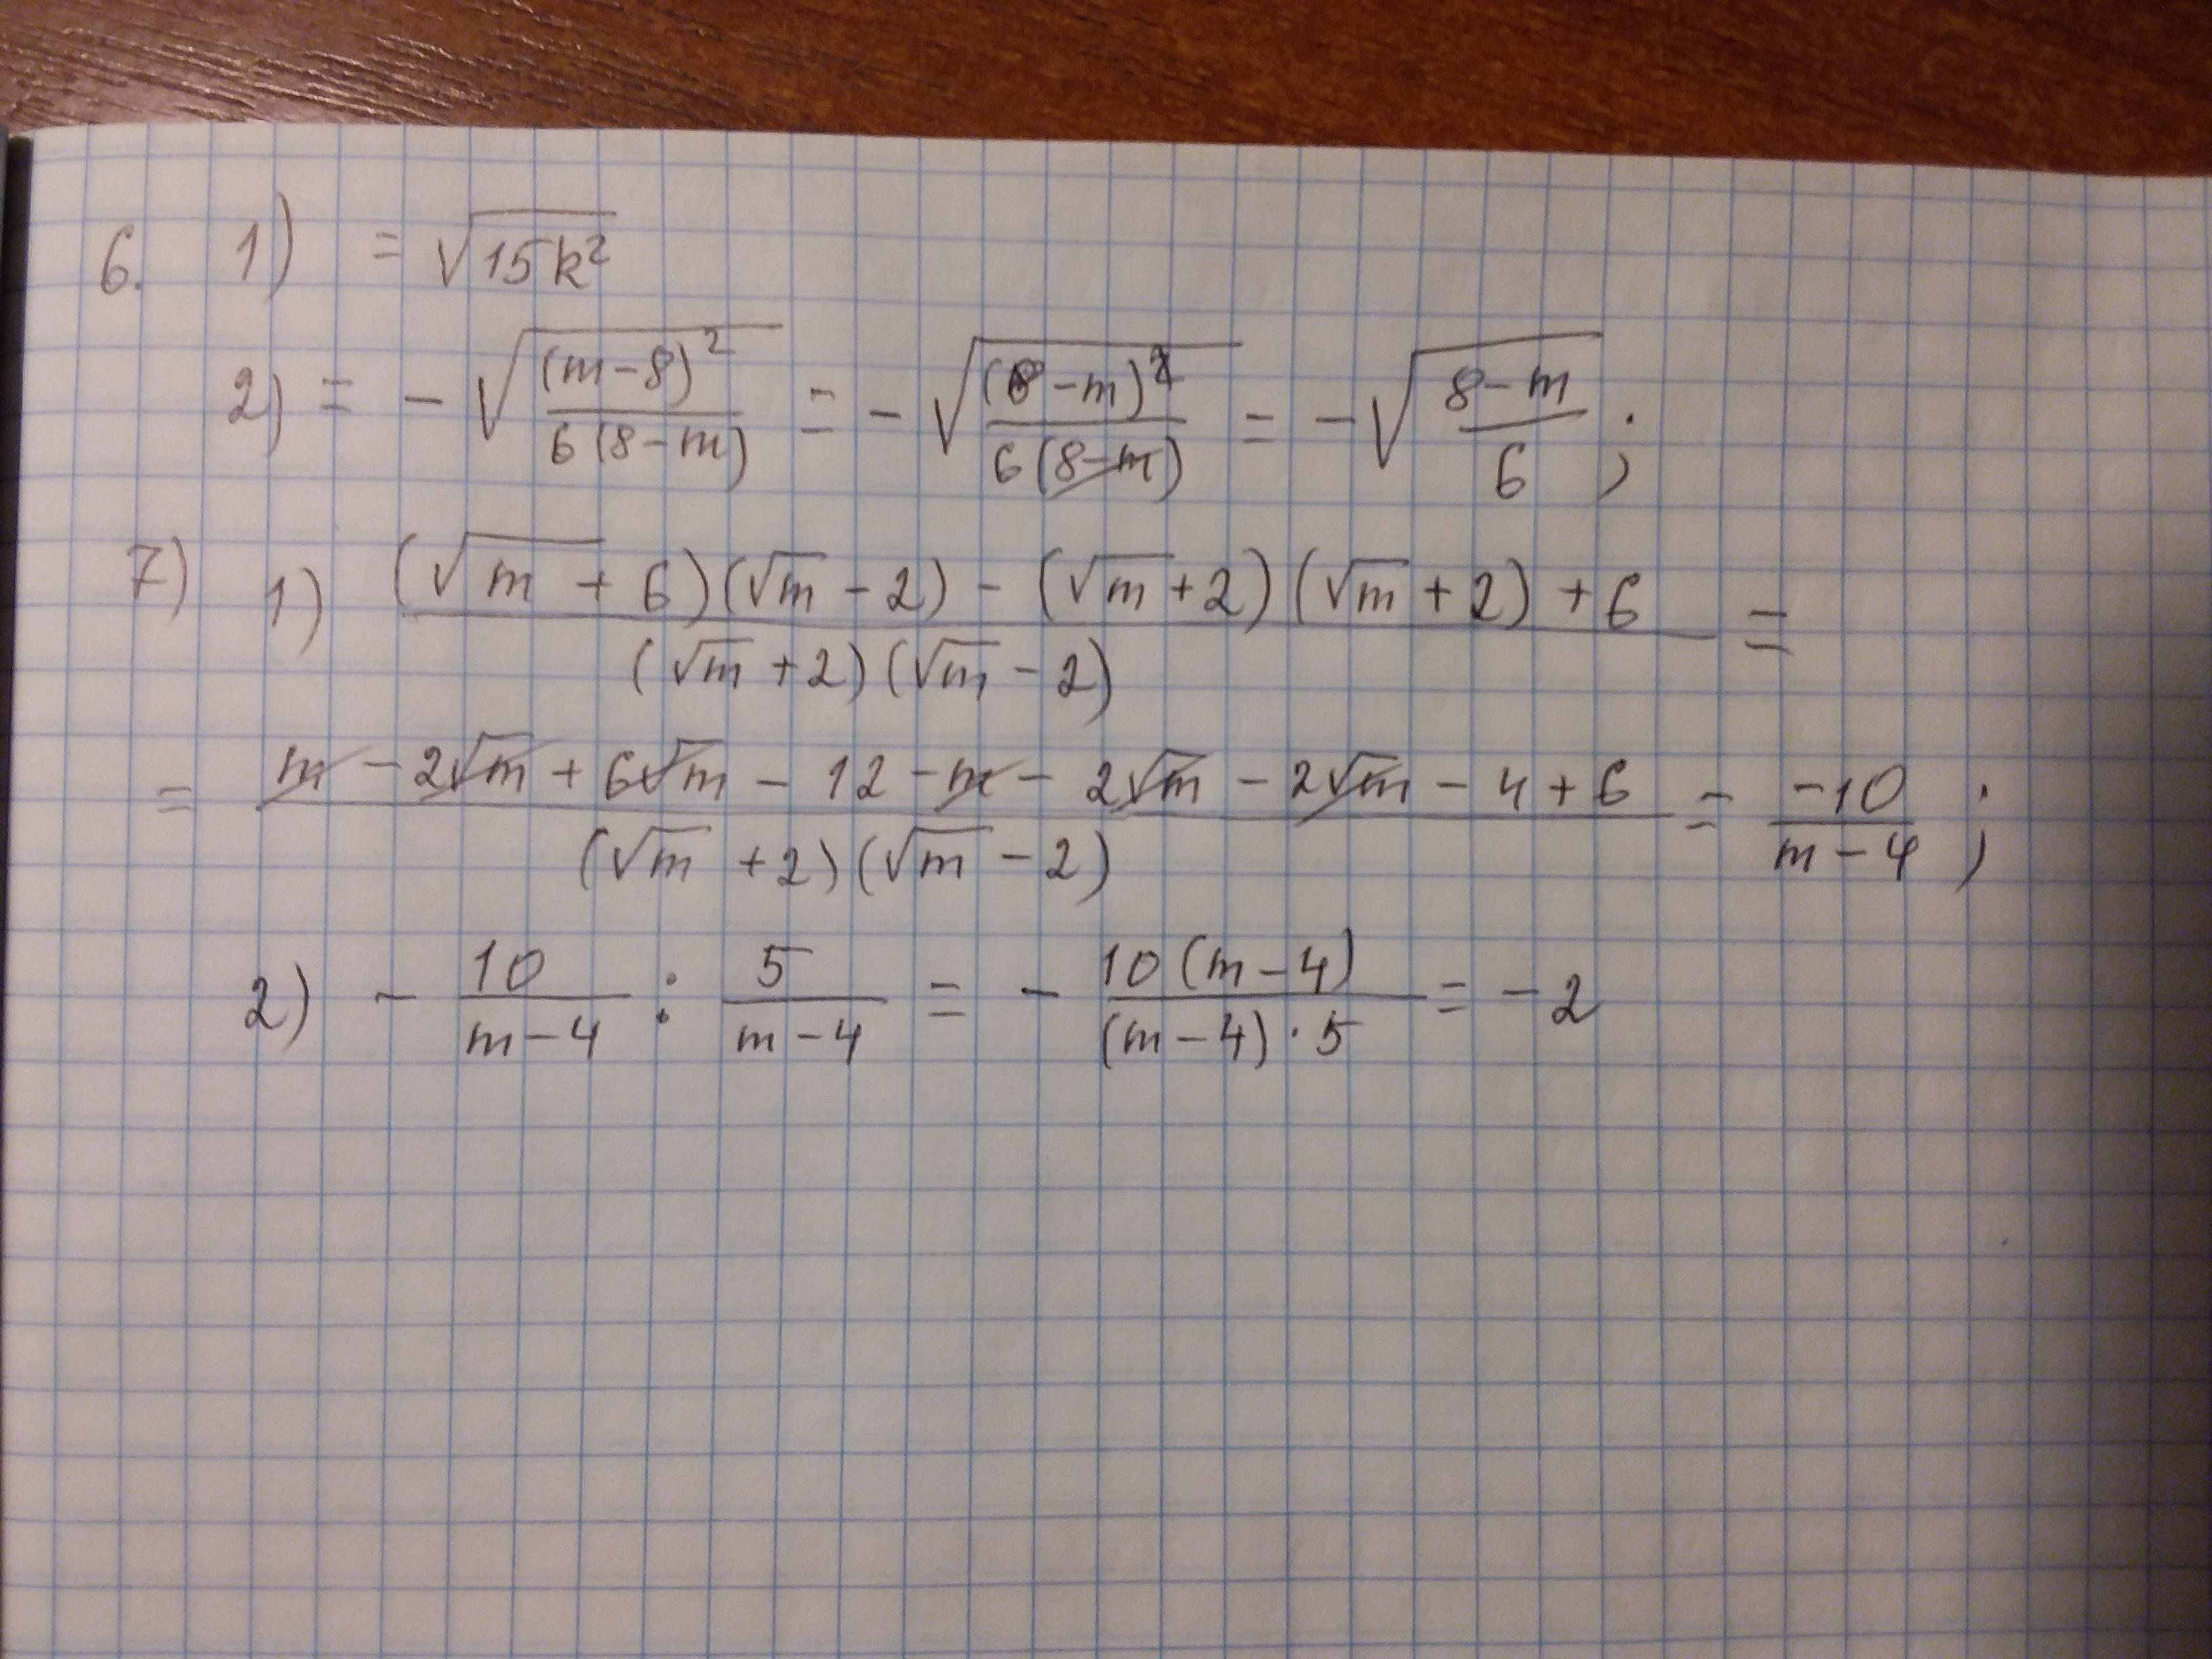 6. 1) = √15k²
2) = - √((m-8)² / 6(8-m)) = - √((8-m)² / 6(8-m)) = - √((8-m) / 6) ;
7) 1) ((√m + 6)(√m - 2) - (√m + 2)(√m + 2) + 6) / ((√m + 2)(√m - 2)) =
= (m - 2√m + 6√m - 12 - m - 2√m - 2√m - 4 + 6) / ((√m + 2)(√m - 2)) = -10 / (m-4) ;
2) - 10/(m-4) : 5/(m-4) = - 10(m-4) / ((m-4)·5) = -2